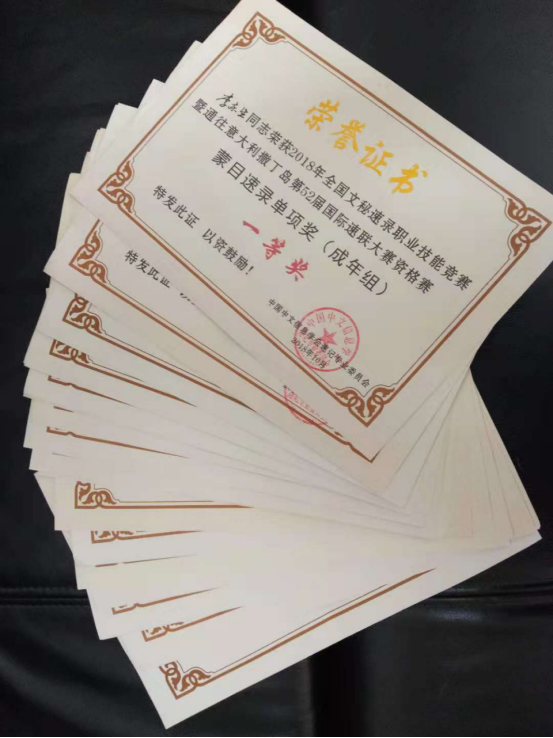 荣誉证书
同志荣获2018年全国文秘速录职业技能竞赛
暨通往意大利撒丁岛第52届国际速联大赛资格赛
蒙目速录单项奖（成年组）
一等奖
特发此证 以资鼓励！
中国中文信息学会速记专业委员会
2018年10月
中国中文信息学会
特发此证